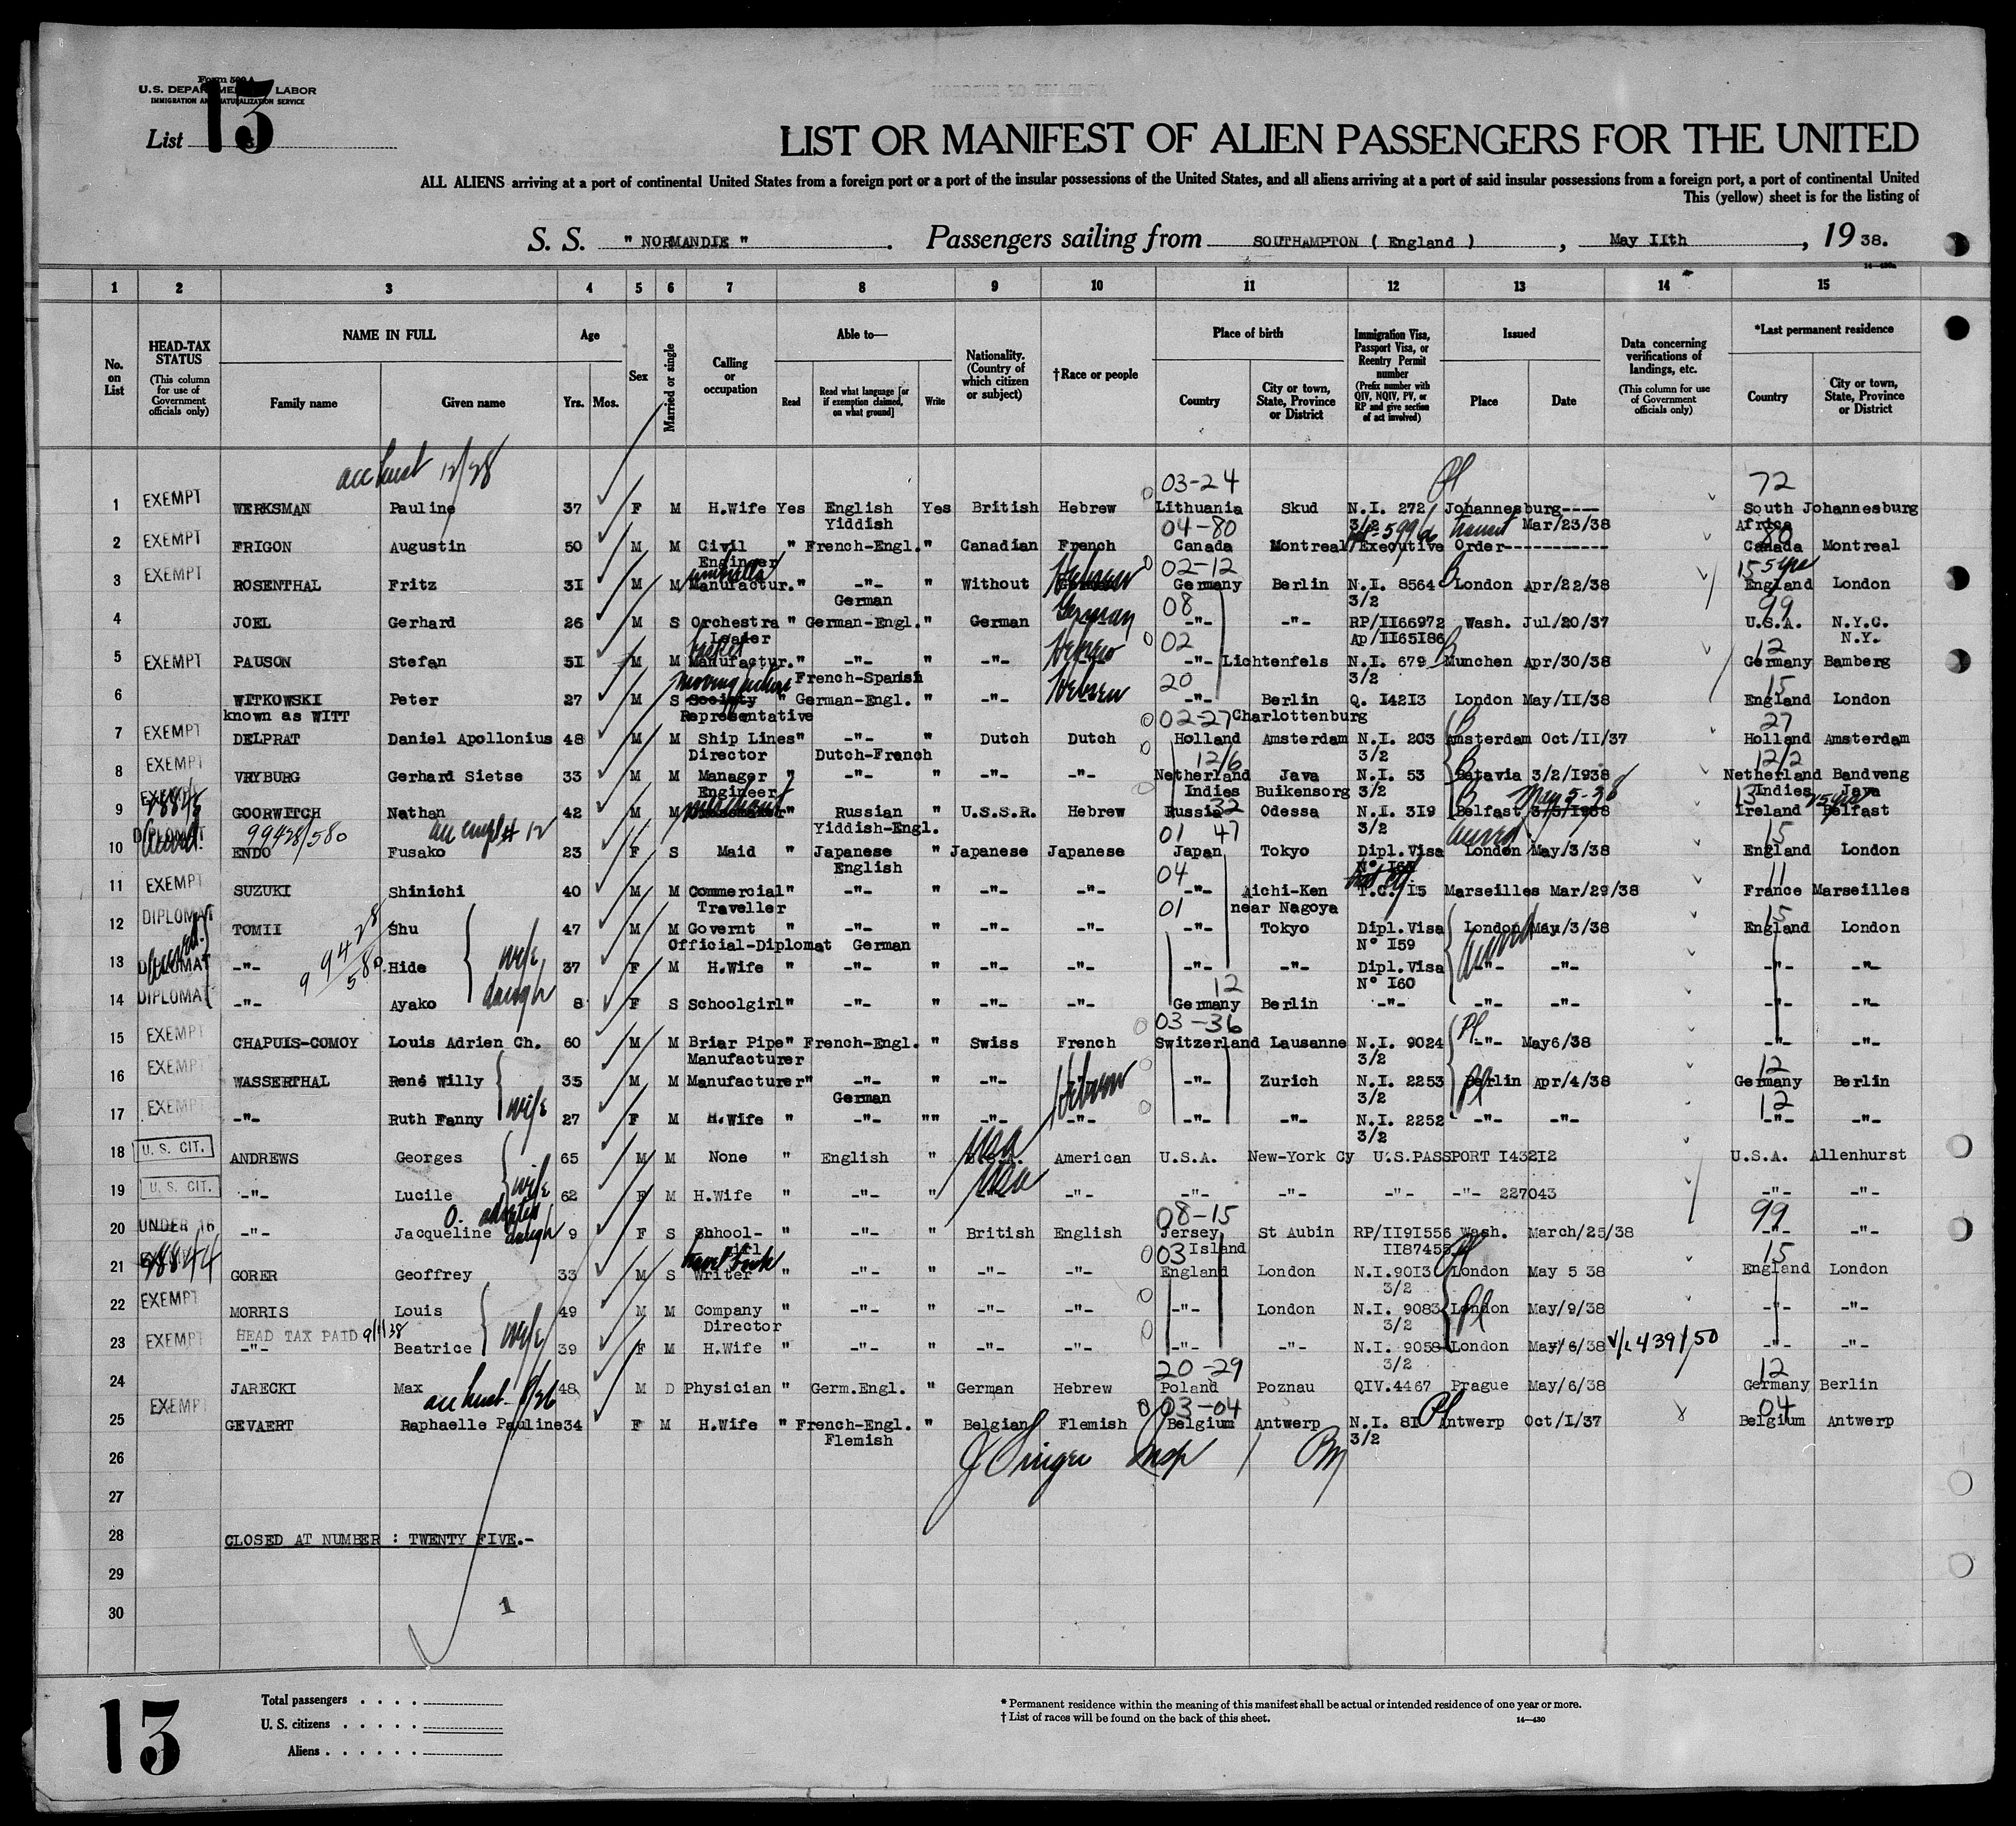 Form 500 A
U.S. DEPARTMENT OF LABOR
IMMIGRATION AND NATURALIZATION SERVICE
List 13
LIST OR MANIFEST OF ALIEN PASSENGERS FOR THE UNITED
ALL ALIENS arriving at a port of continental United States from a foreign port or a port of the insular possessions of the United States, and all aliens arriving at a port of said insular possessions from a foreign port, a port of continental United
This (yellow) sheet is for the listing of
S. S. " NORMANDIE " . Passengers sailing from SOUTHAMPTON ( England ) , May IIth , 19 38.
14-430a
1 2 3 4 5 6 7 8 9 10 11 12 13 14 15
No. on List
HEAD-TAX STATUS (This column for use of Government officials only)
NAME IN FULL
Family name Given name
Age Yrs. Mos.
Sex
Married or single
Calling or occupation
Able to—
Read Read what language [or if exemption claimed, on what ground] Write
Nationality. (Country of which citizen or subject)
†Race or people
Place of birth
Country City or town, State, Province or District
Immigration Visa, Passport Visa, or Reentry Permit number (Prefix number with QIV, NQIV, PV, or RP and give section of act involved)
Issued
Place Date
Data concerning verifications of landings, etc. (This column for use of Government officials only)
*Last permanent residence
Country City or town, State, Province or District
03-24 72
1 EXEMPT WERKSMAN Pauline 37 F M H.Wife Yes English Yes British Hebrew Lithuania Skud N.I. 272 Johannesburg---- South Johannesburg
Yiddish 3/2 Mar/23/38 Africa
04-80 transit 80
2 EXEMPT FRIGON Augustin 50 M M Civil " French-Engl. " Canadian French Canada Montreal Executive Order----------- Canada Montreal
Engineer
umbrella 02-12 15 5yrs
3 EXEMPT ROSENTHAL Fritz 3I M M Manufactur. " -"- " Without Hebrew Germany Berlin N.I. 8564 London Apr/22/38 England London
German 3/2
German 08 99
4 JOEL Gerhard 26 M S Orchestra " German-Engl. " German -"- -"- RP/II66972 Wash. Jul/20/37 U.S.A. N.Y.C.
Leader Ap/II65I86 N.Y.
basket Hebrew 02 12
5 EXEMPT PAUSON Stefan 5I M M Manufactur. " -"- " -"- -"- Lichtenfels N.I. 679 Munchen Apr/30/38 Germany Bamberg
French-Spanish 3/2
moving picture Hebrew 20 15
6 WITKOWSKI Peter 27 M S Society " German-Engl. " -"- -"- Berlin Q. I42I3 London May/II/38 England London
known as WITT Representative Charlottenburg
02-27 27
7 EXEMPT DELPRAT Daniel Apollonius 48 M M Ship Lines " -"- " Dutch Dutch Holland Amsterdam N.I. 203 Amsterdam Oct/II/37 Holland Amsterdam
Director Dutch-French 3/2
12/6 12/2
8 EXEMPT VRYBURG Gerhard Sietse 33 M M Manager " -"- " -"- -"- Netherland Java N.I. 53 Batavia 3/2/I938 Netherland Bandveng
Engineer Indies Buikensorg 3/2 Indies Java
May 5-38
9 EXEMPT GOORWITCH Nathan 42 M M " Russian " U.S.S.R. Hebrew Russia 32 Odessa N.I. 3I9 Belfast 3/5/I938 Ireland Belfast
Yiddish-Engl. 3/2
99428/580 01 47 15
10 DIPLOMAT ENDO Fusako 23 F S Maid " Japanese " Japanese Japanese Japan Tokyo Dipl.Visa London May/3/38 England London
English
04 11
11 EXEMPT SUZUKI Shinichi 40 M M Commercial " -"- " -"- -"- -"- Aichi-Ken T.C. I5 Marseilles Mar/29/38 France Marseilles
Traveller near Nagoya
01 15
12 DIPLOMAT TOMII Shu 47 M M Governt " -"- " -"- -"- -"- Tokyo Dipl.Visa London May/3/38 England London
Official-Diplomat German N° I59
99428/580
13 DIPLOMAT -"- Hide wife 37 F M H.Wife " -"- " -"- -"- -"- -"- Dipl.Visa -"- -"- -"- -"-
N° I60
12
14 DIPLOMAT -"- Ayako daugh 8 F S Schoolgirl " -"- " -"- -"- Germany Berlin -"- -"- -"- -"- -"-
03-36
15 EXEMPT CHAPUIS-COMOY Louis Adrien Ch. 60 M M Briar Pipe " French-Engl. " Swiss French Switzerland Lausanne N.I. 9024 -"- May6/38 -"- -"-
Manufacturer 3/2
12
16 EXEMPT WASSERTHAL René Willy 35 M M Manufacturer " -"- " -"- Hebrew -"- Zurich N.I. 2253 Berlin Apr/4/38 Germany Berlin
German 3/2
12
17 EXEMPT -"- Ruth Fanny wife 27 F M H.Wife " -"- "" -"- -"- -"- -"- N.I. 2252 -"- -"- -"- -"-
3/2
18 U. S. CIT. ANDREWS Georges 65 M M None " English " USA American U.S.A. New-York Cy U.S.PASSPORT I432I2 U.S.A. Allenhurst
19 U. S. CIT. -"- Lucile wife 62 F M H.Wife " -"- " USA -"- -"- -"- -"- -"- 227043 -"- -"-
adopted 08-15 99
20 UNDER 16 -"- Jacqueline daugh 9 F S Shhool- " -"- " British English Jersey St Aubin RP/II9I556 Wash. March/25/38 -"- -"-
girl Island II87455
travel book 03 15
21 GORER Geoffrey 33 M S Writer " -"- " -"- -"- England London N.I.90I3 London May 5 38 England London
3/2
22 EXEMPT MORRIS Louis 49 M M Company " -"- " -"- -"- -"- London N.I. 9083 London May/9/38 -"- -"-
Director 3/2
HEAD TAX PAID 9/1/38
23 EXEMPT -"- Beatrice wife 39 F M H.Wife " -"- " -"- -"- -"- -"- N.I. 9058 London May/6/38 V/L 4391/50 -"- -"-
3/2
20-29 12
24 JARECKI Max 48 M D Physician " Germ.Engl. " German Hebrew Poland Poznau QIV.4467 Prague May/6/38 Germany Berlin
03-04 04
25 EXEMPT GEVAERT Raphaelle Pauline 34 F M H.Wife " French-Engl. " Belgian Flemish Belgium Antwerp N.I. 8I Antwerp Oct/I/37 Belgium Antwerp
Flemish 3/2
26
27
28 CLOSED AT NUMBER : TWENTY FIVE.-
29
30
1
13
Total passengers . . . .
U. S. citizens . . . . .
Aliens . . . . . .
* Permanent residence within the meaning of this manifest shall be actual or intended residence of one year or more.
† List of races will be found on the back of this sheet.
14—430